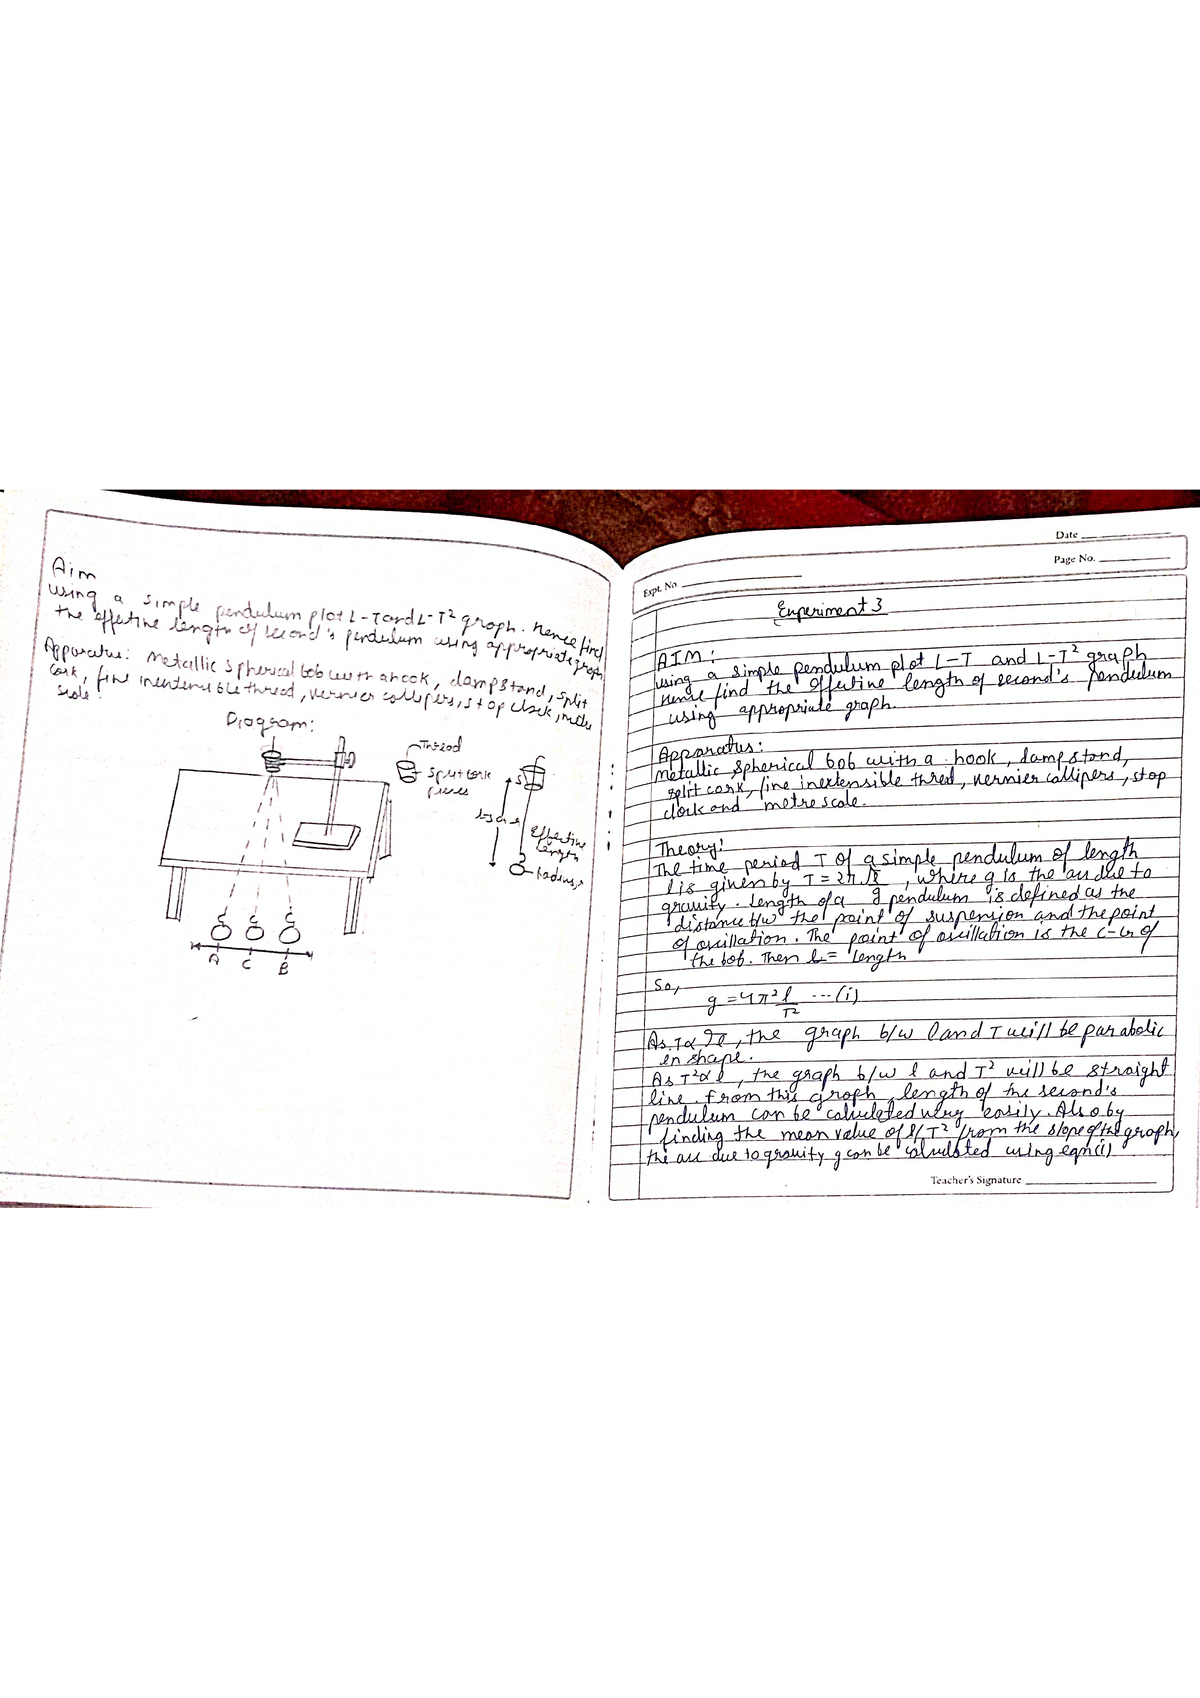 Aim
Using a simple pendulum plot L-T and L-T² graph. Hence find
the effective length of second's pendulum using appropriate graph
Apparatus: Metallic Spherical bob with a hook, clamp stand, split
cork, fine inextensible thread, vernier callipers, stop clock, metre
scale.
Diagram:
Thread
Split cork
pieces
S
Effective
length
radius, r
A
C
B
Date
Page No.
Expt. No.
Experiment 3
AIM:
Using a simple pendulum plot L-T and L-T² graph
Hence find the effective length of second's pendulum
using appropriate graph.
Apparatus:
Metallic Spherical bob with a hook, clamp stand,
split cork, fine inextensible thred, vernier callipers, stop
clock and metre scale.
Theory:
The time period T of a simple pendulum of length
l is given by T = 2π√l/g, where g is the acc due to
gravity. Length of a pendulum is defined as the
distance b/w the point of suspension and the point
of oscillation. The point of oscillation is the
the bob. Then L = length
So,
g = 4π² l/T² ---(i)
As T∝√l, the graph b/w l and T will be parabolic
in shape.
As T²∝l, the graph b/w l and T² will be straight
line. From this graph, length of the second's
pendulum can be calculated very easily. Also by
finding the mean value of l/T² from the slope of the graph,
the acc due to gravity g can be calculated using eqn (i)
Teacher's Signature